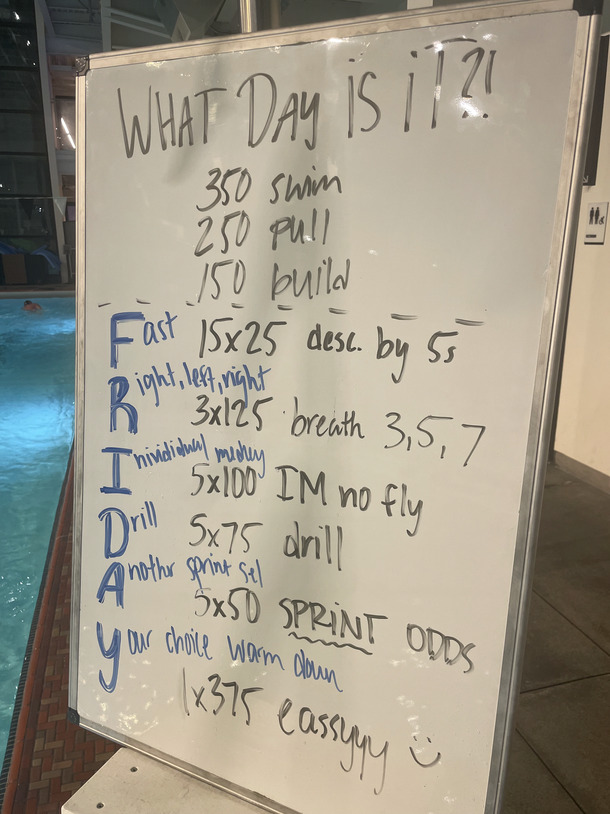 WHAT DAY IS IT?!
350 swim
250 pull
150 build
Fast 15x25 desc. by 5s
Right, left, right
3x125 breath 3,5,7
Inivididual medley
5x100 IM no fly
Drill
5x75 drill
Anothr sprint set
5x50 SPRINT ODDS
Your choice warm down
1x375 eassyyy